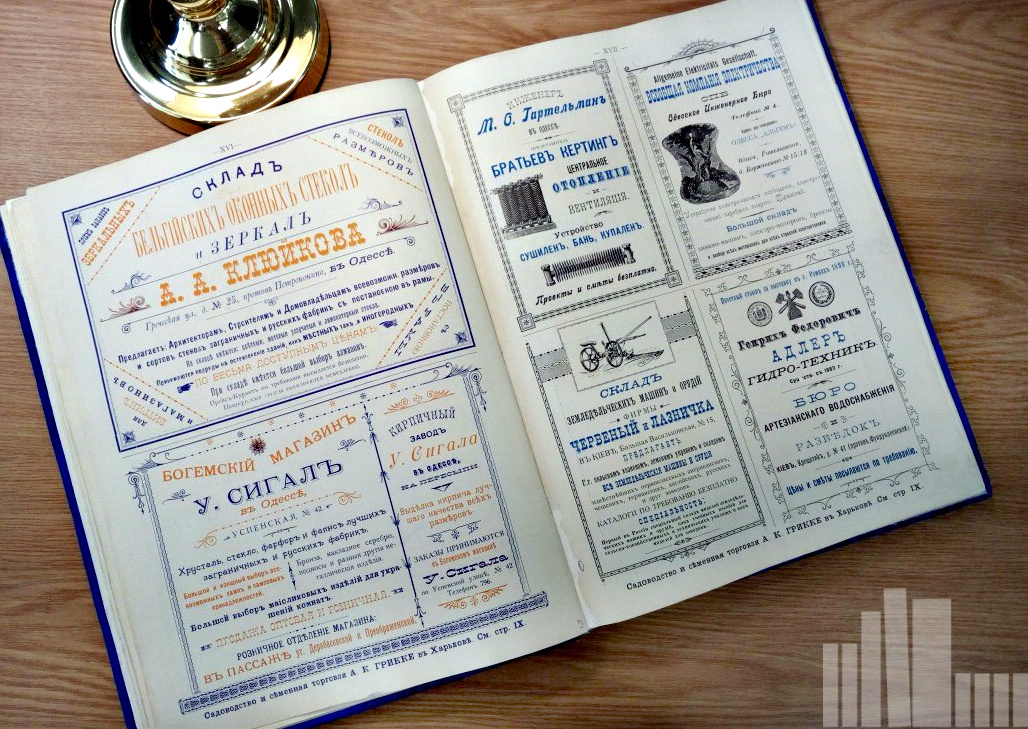 — XVI —
СКЛАДЪ
БЕЛЬГІЙСКИХЪ ОКОННЫХЪ СТЕКОЛЪ
и ЗЕРКАЛЪ
А. А. КЛЮЙКОВА
Греческая ул. д. № 25, противъ Петрококино, въ Одессѣ.
СТЕКОЛЪ
ВСЕВОЗМОЖНЫХЪ
РАЗМѢРОВЪ
ЗЕРКАЛЬНЫХЪ
Предлагаетъ: Архитекторамъ, Строителямъ и Домовладѣльцамъ всевозможн. размѣровъ
и сортовъ стеколъ заграничныхъ и русскихъ фабрикъ съ постановкою въ рамы.
ПО ВЕСЬМА ДОСТУПНЫМЪ ЦѢНАМЪ
При складѣ имѣется большой выборъ алмазовъ.
Для
и МАГАЗИНОВЪ
БОГЕМСКІЙ МАГАЗИНЪ
У. СИГАЛЪ
въ Одессѣ,
УСПЕНСКАЯ, № 42
Хрусталь, стекло, фарфоръ и фаянсъ лучшихъ
заграничныхъ и русскихъ фабрикъ.
Большой и изящный выборъ все-
возможныхъ лампъ и ламповыхъ
принадлежностей.
Бронза, накладное серебро,
подносы и разныя другія ме-
таллическія издѣлія.
Большой выборъ маіоликовыхъ издѣлій для укра-
шеній комнатъ.
ПРОДАЖА ОПТОВАЯ И РОЗНИЧНАЯ.
РОЗНИЧНОЕ ОТДѢЛЕНІЕ МАГАЗИНА:
ВЪ ПАССАЖѢ уг. Дерибасовской и Преображенской.
КИРПИЧНЫЙ
ЗАВОДЪ
У. Сигала
ВЪ ОДЕССѢ,
НА ПЕРЕСЫПИ
Выдѣлка кирпича луч-
шаго качества всѣхъ
размѣровъ.
ЗАКАЗЫ ПРИНИМАЮТСЯ
въ Богемскомъ магазинѣ
У. Сигала
по Успенской улицѣ, № 42
Телефонъ 796.
Садоводство и сѣменная торговля А. К. ГРИККЕ въ Харьковѣ. См. стр. IX.
— XVII —
ИНЖЕНЕРЪ
М. С. Гартельманъ
ВЪ ОДЕССѢ.
ПРЕДСТАВИТЕЛЬ
БРАТЬЕВЪ КЕРТИНГЪ
ЦЕНТРАЛЬНОЕ
ОТОПЛЕНІЕ
И
ВЕНТИЛЯЦІЯ.
Устройство
СУШИЛЕНЪ, БАНЬ, КУПАЛЕНЪ.
Проекты и смѣты безплатно.
Allgemeine Elektricitäts Gesellschaft,
ВСЕОБЩАЯ КОМПАНІЯ ЭЛЕКТРИЧЕСТВА
Одесское Инженерное Бюро
Телефонъ № 4
ОДЕССА „АЛЬГЕМ“
Большой складъ
СКЛАДЪ
ЗЕМЛЕДѢЛЬЧЕСКИХЪ МАШИНЪ и ОРУДІЙ
ФИРМЫ
ЧЕРВЕНЫЙ и ЛАЗНИЧКА
ВЪ КІЕВѢ, Большая Васильковская, № 15,
ПРЕДЛАГАЕТЪ
ВСѢ ЗЕМЛЕДѢЛЬЧЕСКІЯ МАШИНЫ И ОРУДІЯ
КАТАЛОГИ ПО ТРЕБОВАНІЮ БЕЗПЛАТНО
СПЕЦІАЛЬНОСТЬ:
Генрихъ Федоровичъ
АДЛЕРЪ
ГИДРО-ТЕХНИКЪ
БЮРО
АРТЕЗІАНСКАГО ВОДОСНАБЖЕНІЯ
И
РАЗВѢДОКЪ
Цѣны и смѣты посылаются по требованію.
Садоводство и сѣменная торговля А. К. ГРИККЕ въ Харьковѣ См стр IX.